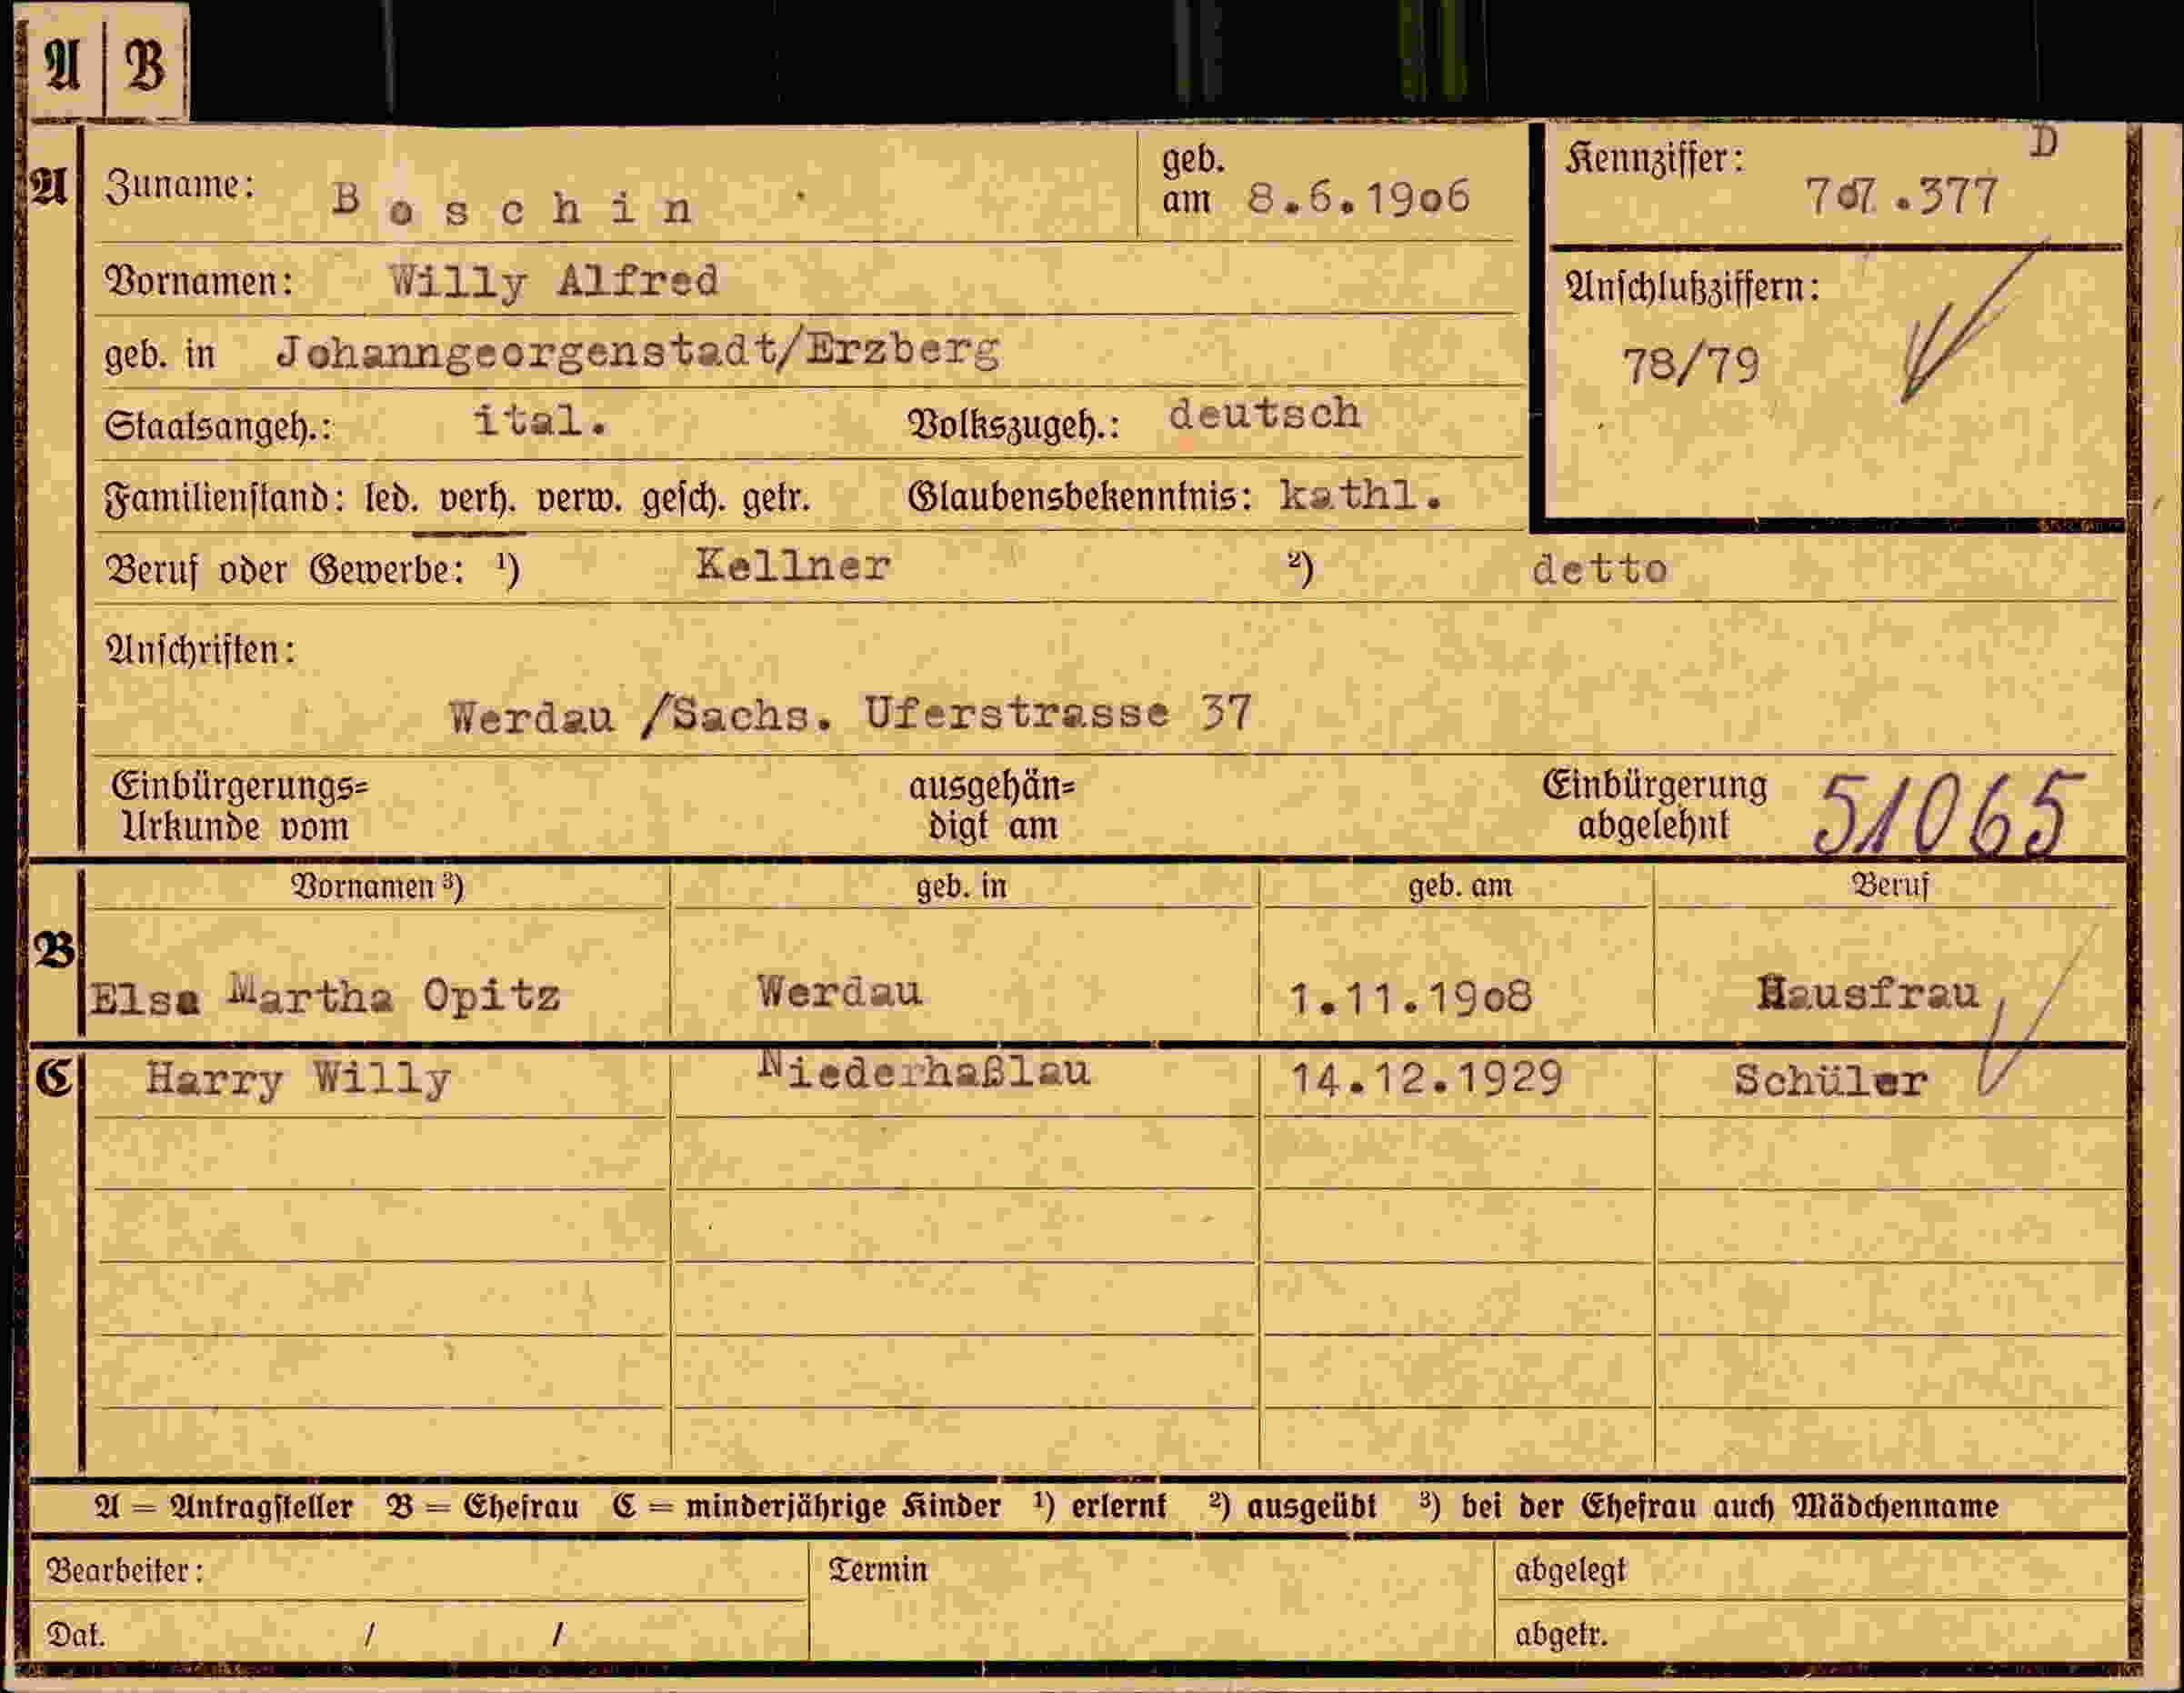 A B
D
A Zuname: Boschin geb. am 8.6.1906 Kennziffer:
Vornamen: Willy Alfred Anschlußziffern:
geb. in Johanngeorgenstadt/Erzberg 78/79
Staatsangeh.: ital. Volkszugeh.: deutsch
Familienstand: led. verh. verw. gesch. getr. Glaubensbekenntnis: kathl.
Beruf oder Gewerbe: ¹) Kellner ²) detto
Anschriften:
Werdau /Sachs. Uferstrasse 37
Einbürgerungs= Urkunde vom ausgehän= digt am Einbürgerung abgelehnt 51065
Vornamen ³) geb. in geb. am Beruf
B Elsa Martha Opitz Werdau 1.11.1908 Hausfrau
C Harry Willy Niederhaßlau 14.12.1929 Schüler
A = Antragsteller B = Ehefrau C = minderjährige Kinder ¹) erlernt ²) ausgeübt ³) bei der Ehefrau auch Mädchenname
Bearbeiter: Termin abgelegt
Dat. / / abgetr.